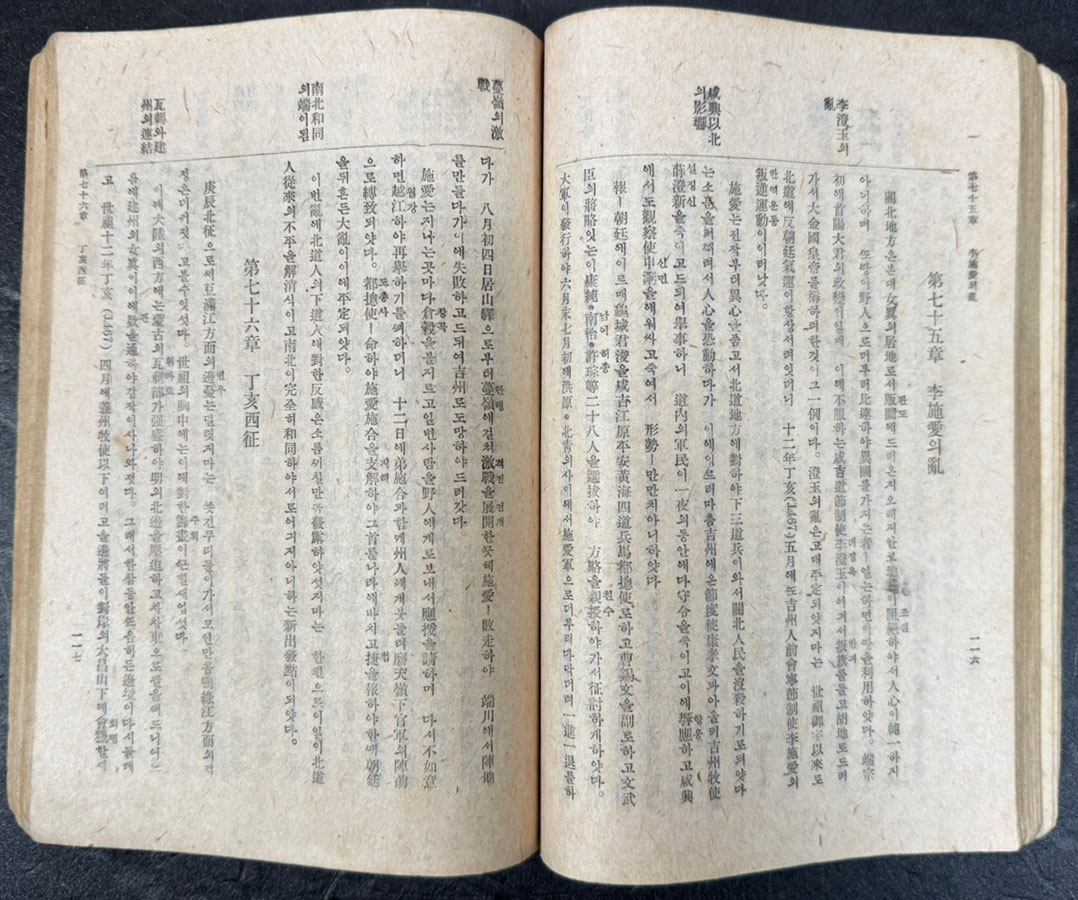 第七十五章 李施愛의亂
二一六
第七十五章 李施愛의亂
李澄玉의亂
關北地方은본대女眞의居地로서版圖에드러온지오래지안코 하야서人心이純一하지
아니하며 또땅이野人으로더부러比連하야異國
初에首陽大君의政變이일매 이에不服하는咸吉道節制使李澄玉이여긔서叛旗를들고胡地로드러
가서大金國皇帝를 하려한것이그一例이다。 澄玉의亂은고대平定되얏거지마는 世祖御宇以來로
北道에反朝廷氣運이항상서려잇더니 十二年丁亥(1467)五月에또吉州人前會寧節制使李施愛의
叛逆運動이이러낫다。
咸興以北의影響
施愛는전작부터異心을품고서北道地方에對하야下三道兵이와서關北人民을沒殺하기로되얏다
는소문을퍼떠려서人心을 動하다가 이에이르러마츰吉州에온節度使康孝文과아울러吉州牧使
薛澄新을죽이고드되여擧事하니 道內의軍民이一夜의동안에다守令을죽이고이에響應하고咸興
에서도觀察使申㴐을에워싸고죽여서 形勢ㅣ만만치아니하얏다
報ㅣ朝廷에이르매龜城君浚을咸吉江原平安黃海四道兵馬都摠使로하고曹錫文을副로하고文武
臣의將略잇는이康純。 南怡。 許琮等二十八人을選拔하야 方略을親授하야가서征討하게하얏다。
大軍이發行하야六月末七月初에洪原。 北青의사이에서施愛軍으로더부러마다며러一進一退를하
다가 八月初四日居山驛으로부터蔓嶺에걸처激戰을展開한끗헤施愛ㅣ敗走하야 端川에서陣地
를만들다가이에失敗하고드듸여吉州로도망하야드러갓다。
蔓嶺의激戰
施愛는지나는곳마다倉穀을불지르고일변사람을野人에게로보내서應援을請하며 다시不如意
하면越江하야再擧하기를예하더니 十二日에弟施合과함께州人에게붓들려磨天嶺下官軍의陣前
으로縛致되얏다。 都摠使ㅣ命하야施愛施合을支解하야그首를나라에바치고捷을報하야한때朝廷
을뒤흔든大亂이이에平定되얏다。
南北和同의端이됨
이번亂에北道人의下道人에對한反感은소름끼칠만큼發露하얏섯지마는 한편으로이일이北道
人從來의不平을解消시이고南北이完全히和同하야서도어긔지아니하는新出發點이되얏다。
第七十六章 丁亥西征
瓦剌와建州의連結
庚辰北征으로써豆滿江方面의邊憂는덜렷지마는 쫏긴무리들이가서모인만큼鴨綠江方面의걱
정은더커젓다고볼수잇섯다。 世祖의胸中에는이에對한籌畫이근일새업섯다。
이때大陸의西方에는蒙古의瓦剌部가强盛하야明의北邊을壓迫하고차차東으로팔을써드니어느
틈에建州의女眞이이에款을通하야갑작이사나와젓다。 그래서한참동안뜨음하든邊境이다시들레
고 世祖十二年丁亥(1467)四月에義州牧使以下여러고을邊將들이對岸의大昌山下에會獵할
第七十六章 丁亥西征
二一七